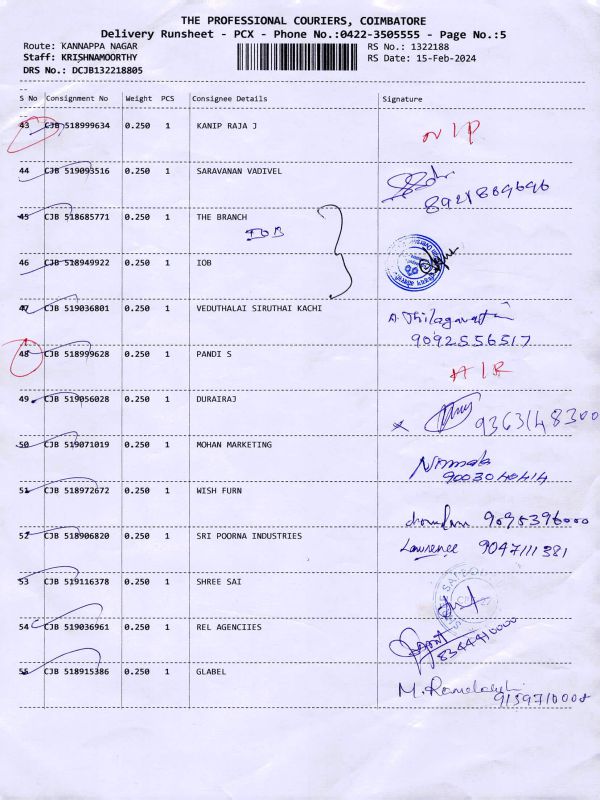 THE PROFESSIONAL COURIERS, COIMBATORE
Delivery Runsheet - PCX - Phone No.:0422-3505555 - Page No.:5
Route: KANNAPPA NAGAR RS No.: 1322188
Staff: KRISHNAMOORTHY RS Date: 15-Feb-2024
DRS No.: DCJB132218805
S No Consignment No Weight PCS Consignee Details Signature
43 CJB 518999634 0.250 1 KANIP RAJA J
44 CJB 519093516 0.250 1 SARAVANAN VADIVEL
45 CJB 518685771 0.250 1 THE BRANCH
IOB
46 CJB 518949922 0.250 1 IOB
47 CJB 519036801 0.250 1 VEDUTHALAI SIRUTHAI KACHI
9092556517
48 CJB 518999628 0.250 1 PANDI S
49 CJB 519056028 0.250 1 DURAIRAJ
9363148300
50 CJB 519071019 0.250 1 MOHAN MARKETING
Nirmala
9003040414
51 CJB 518972672 0.250 1 WISH FURN
9095396000
52 CJB 518906820 0.250 1 SRI POORNA INDUSTRIES
Lawrence 9047111381
53 CJB 519116378 0.250 1 SHREE SAI
54 CJB 519036961 0.250 1 REL AGENCIIES
8344410000
55 CJB 518915386 0.250 1 GLABEL
9159710008